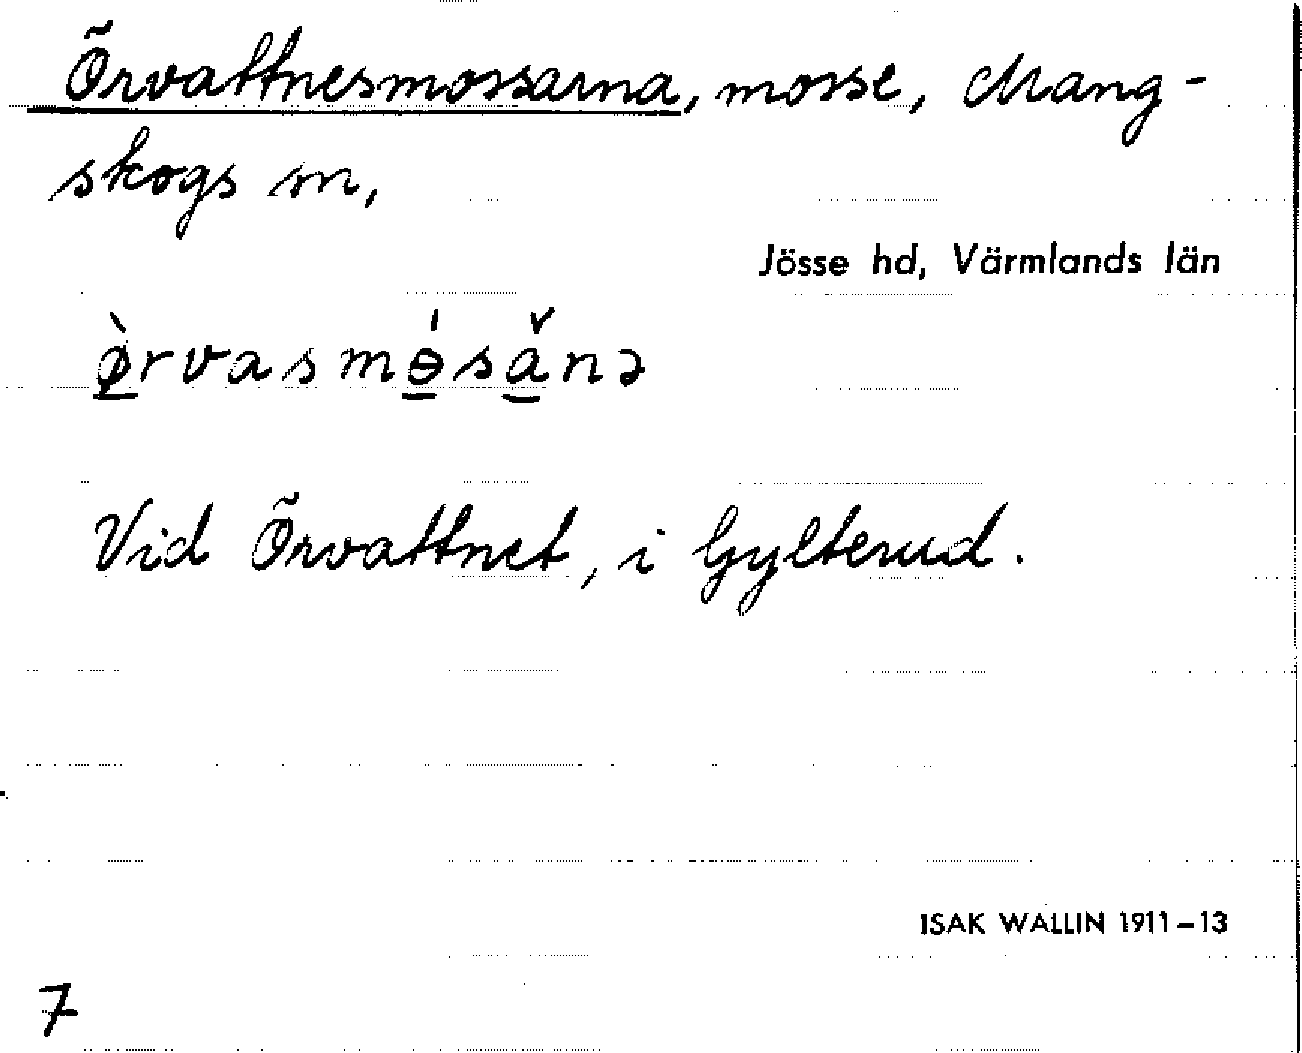 Örvattnesmossarna, mosse, Mang-
skogs sn,
Jösse hd, Värmlands län
ø̀rvasmɵ́sǎnə
Vid Örvattnet, i Gylterud.
ISAK WALLIN 1911–13
7